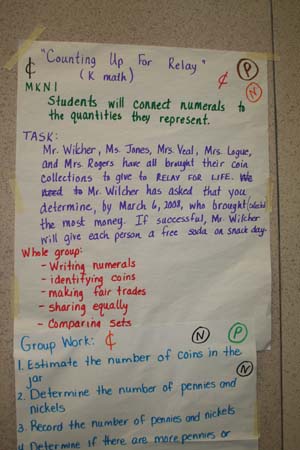 "Counting Up For Relay"
¢ (K math) ¢ P
MKN1 N
Students will connect numerals to
the quantities they represent.
TASK:
Mr. Wilcher, Ms. Jones, Mrs. Veal, Mrs. Logue,
and Mrs. Rogers have all brought their coin
collections to give to RELAY FOR LIFE. We
need to Mr. Wilcher has asked that you
determine, by March 6, 2008, who brought collected
the most money. If successful, Mr. Wilcher
will give each person a free soda on snack day.
Whole group:
- Writing numerals
- identifying coins
- making fair trades
- sharing equally
- Comparing sets
Group Work: ¢ N P
1. Estimate the number of coins in the
jar N
2. Determine the number of pennies and
nickels
3. Record the number of pennies and nickels
4. Determine if there are more pennies or